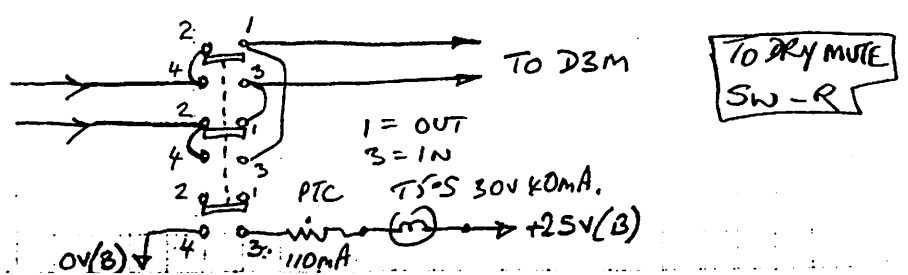 2 1
4 3
TO D3M
TO DRY MUTE
SW-R
2 1
4 3
1 = OUT
3 = IN
2 1
PTC T5.5 30V 40mA.
+25V(B)
0V(B) 4 3
110mA